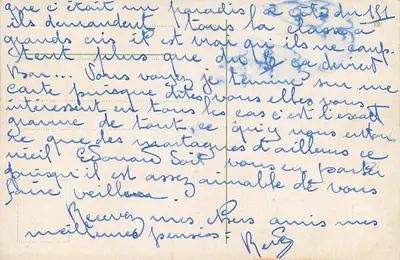 que c'était un paradis à côté du 151
ils demandent tous la classe à
grands cris il est vrai qu'ils ne comp-
tent plus que du ca direct
Bar... Vous voyez je termine sur une
carte puisque dites vous elles vous
intéressent en tous les cas c'est l'exact
gramme de tout ce qu'y nous entou
re que des montagnes d'ailleurs ce
vieil Edouard Soit vous en parler
puisqu'il est assez aimable de vous
faire veiller
Recevez mes chers amis mes
meilleures pensées =
René